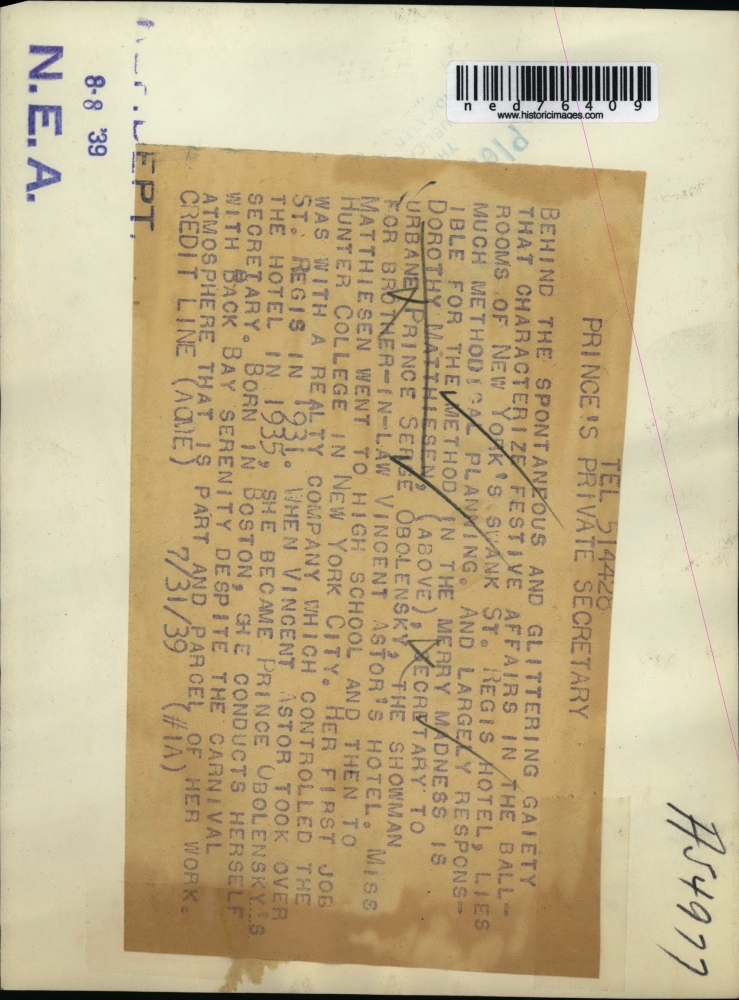 N.E.A.
8-8 '39
DEPT.
ned76409
www.historicimages.com
TEL 514428
PRINCE'S PRIVATE SECRETARY
BEHIND THE SPONTANEOUS AND GLITTERING GAIETY
THAT CHARACTERIZE FESTIVE AFFAIRS IN THE BALL-
ROOMS OF NEW YORK'S SWANK ST. REGIS HOTEL, LIES
MUCH METHODICAL PLANNING. AND LARGELY RESPONS-
IBLE FOR THE METHOD IN THE MERRY MIDNESS IS
DOROTHY MATTHIESEN, (ABOVE), SECRETARY TO
URBANE PRINCE SERGE OBOLENSKY, THE SHOWMAN
FOR BROTHER-IN-LAW VINCENT ASTOR'S HOTEL. MISS
MATTHIESEN WENT TO HIGH SCHOOL AND THEN TO
HUNTER COLLEGE IN NEW YORK CITY. HER FIRST JOB
WAS WITH A REALTY COMPANY WHICH CONTROLLED THE
ST. REGIS IN 1931. WHEN VINCENT ASTOR TOOK OVER
THE HOTEL IN 1935, SHE BECAME PRINCE OBOLENSKY'S
SECRETARY. BORN IN BOSTON, SHE CONDUCTS HERSELF
WITH BACK BAY SERENITY DESPITE THE CARNIVAL
ATMOSPHERE THAT IS PART AND PARCEL OF HER WORK.
CREDIT LINE (ACME) 7/31/39 (#1A)
A54977